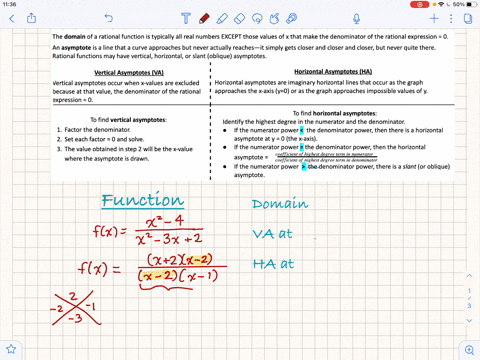 11:36
50%
The domain of a rational function is typically all real numbers EXCEPT those values of x that make the denominator of the rational expression = 0.
An asymptote is a line that a curve approaches but never actually reaches—it simply gets closer and closer and closer, but never quite there.
Rational functions may have vertical, horizontal, or slant (oblique) asymptotes.
Vertical Asymptotes (VA)
Vertical asymptotes occur when x-values are excluded
because at that value, the denominator of the rational
expression = 0.
Horizontal Asymptotes (HA)
Horizontal asymptotes are imaginary horizontal lines that occur as the graph
approaches the x-axis (y=0) or as the graph approaches impossible values of y.
To find vertical asymptotes:
1. Factor the denominator.
2. Set each factor = 0 and solve.
3. The value obtained in step 2 will be the x-value
where the asymptote is drawn.
To find horizontal asymptotes:
Identify the highest degree in the numerator and the denominator.
• If the numerator power < the denominator power, then there is a horizontal
asymptote at y = 0 (the x-axis).
• If the numerator power = the denominator power, then the horizontal
asymptote = coefficient of highest degree term in numerator / coefficient of highest degree term in denominator
• If the numerator power > the denominator power, there is a slant (or oblique)
asymptote.
Function
Domain
f(x) = x² - 4 / x² - 3x + 2
VA at
f(x) = (x+2)(x-2) / (x-2)(x-1)
HA at
2
-2 -1
-3
1
3